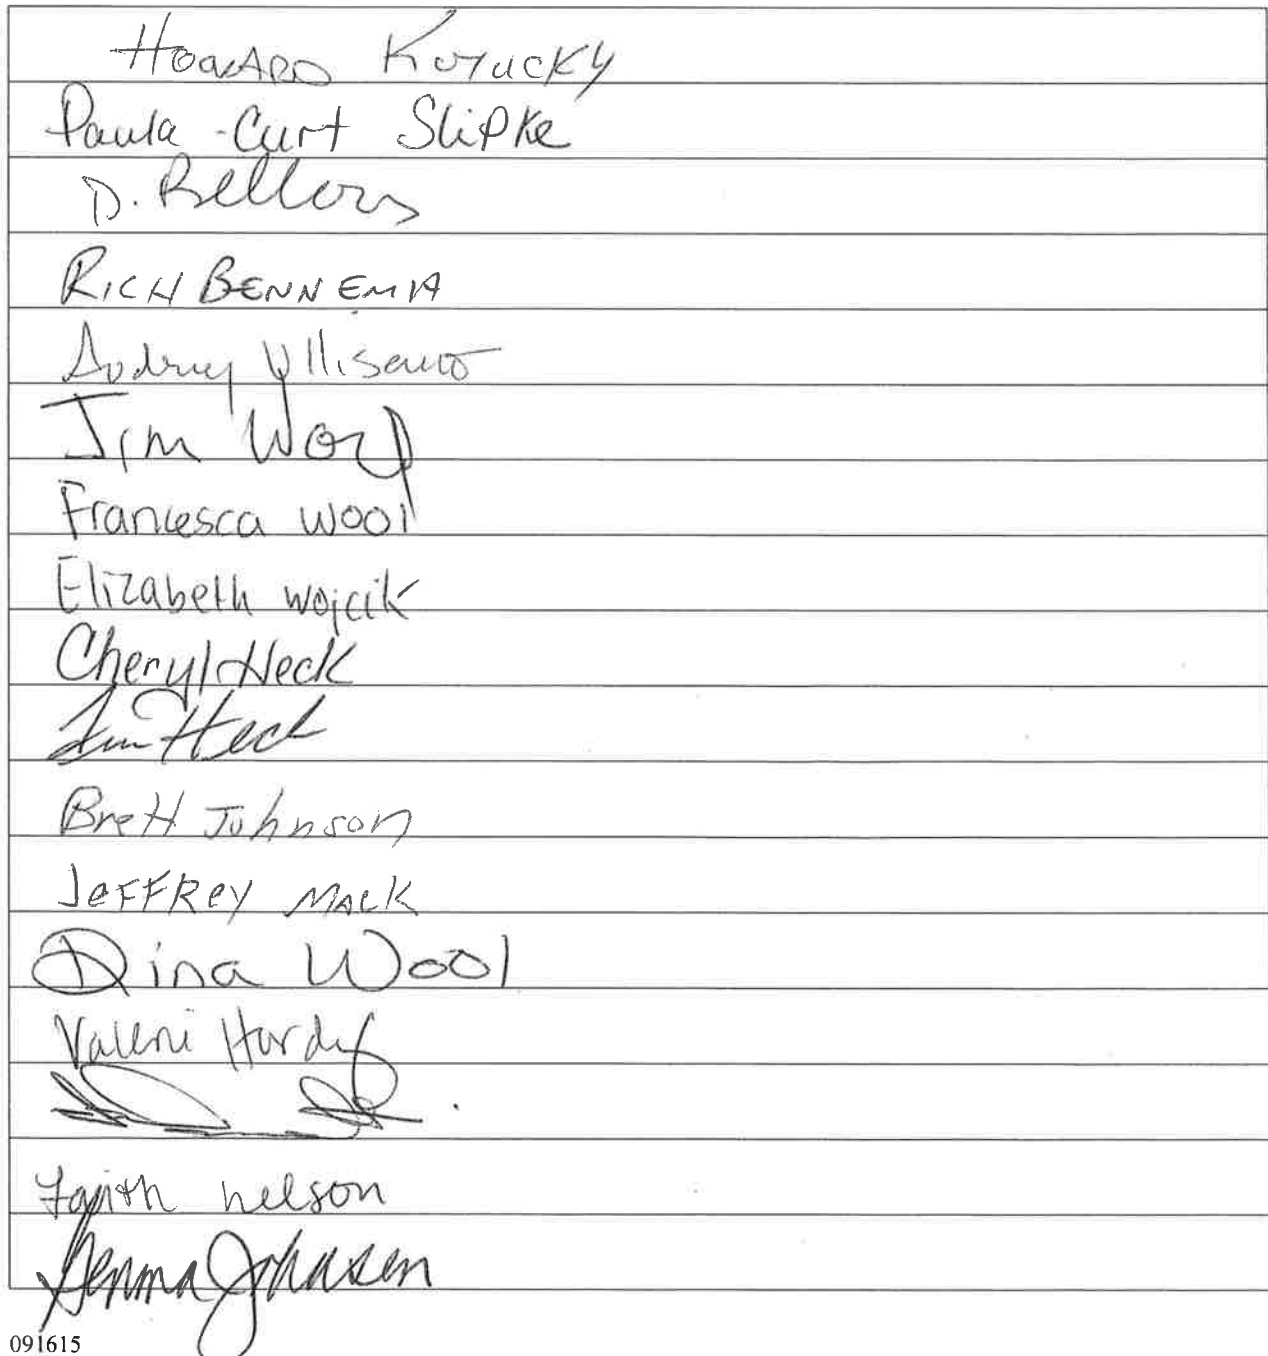 Howard
Paula - Curt Slipke
D. Bellors
Rich Bennema
Audrey
Jim
Francesca Wool
Elizabeth Wojcik
Cheryl Heck
Jim Heck
Brett Johnson
Jeffrey Mack
Dina Wool
Valerie Hardy
Faith nelson
Johnsen
091615